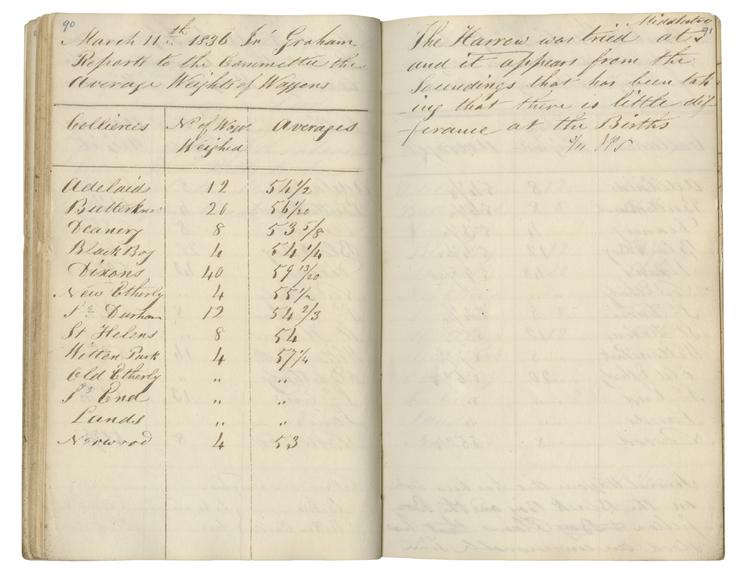 90
March 11th 1836 Jno Graham
Reports to the Committee the
Average Weights of Waggons
Collieries No of Wags Weighed Averages
Adelaids 12 54 1/2
Butterknow 20 56 1/20
Deanery 8 53 5/8
Black Boy 4 54 1/4
Dixons 40 59 13/20
New Etherly 4 55 1/2
So Durham 12 54 2/3
St Helens 8 54
Witton Park 4 57 1/4
Old Etherly " "
So End " "
Lunds " "
Norwood 4 53
91
Middlesbro
The Harrow was tried at
and it appears from the
Soundings that has been tak
ing that there is little dif
ferance at the Births